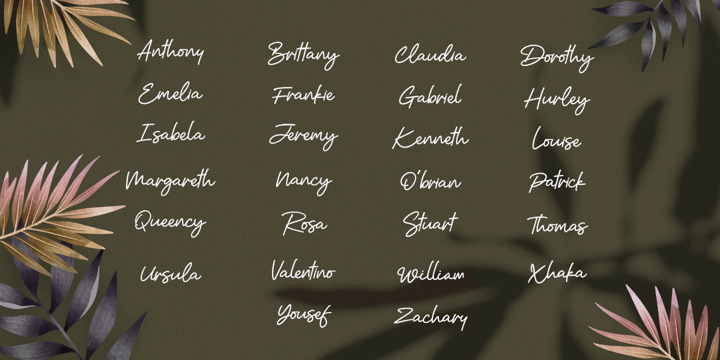 Anthony Brittany Claudia Dorothy
Emelia Frankie Gabriel Hurley
Isabela Jeremy Kenneth Louise
Margareth Nancy O'brian Patrick
Queency Rosa Stuart Thomas
Ursula Valentino William Xhaka
Yousef Zachary